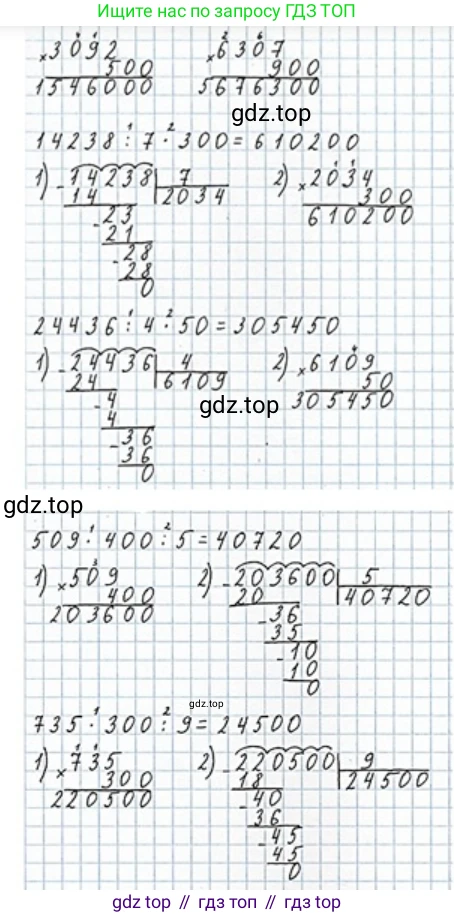 Ищите нас по запросу ГДЗ ТОП
×3092 ×6307
500 900
1546000 5676300
gdz.top
14238 : 7 · 300 = 610200
1) -14238 | 7 2) ×2034
14 | 2034 300
-23 610200
21
-28
28
0
24436 : 4 · 50 = 305450
1) -24436 | 4 2) ×6109
24 | 6109 50
-4 305450
4
-36
36
0
gdz.top
gdz.top
509 · 400 : 5 = 40720
1) ×509 2) -203600 | 5
400 20 | 40720
203600 -36
35
-10
10
0
gdz.top
735 · 300 : 9 = 24500
1) ×735 2) -220500 | 9
300 18 | 24500
220500 -40
36
-45
45
0
gdz топ // гдз топ // gdz.top